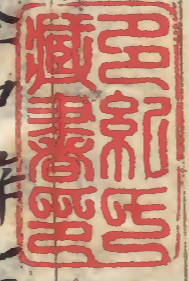 邑紀氏
藏書印